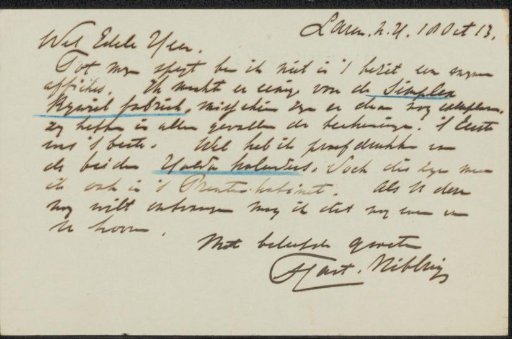 Laren. N.H. 10 Oct 13.
Wel Edele Heer.
Tot mijn spijt ben ik niet in 't bezit van mijn
affiches. Ik maakte er eenige voor de Simplex
Rijwiel fabriek, misschien zijn er daar nog
zij hebben in allen gevallen de teekeningen. 't Eerste
was 't beste. Wel heb ik proefdrukken van
de beide Holda kalenders. Doch die zijn meen
ik ook in 't Prentenkabinet. Als U deze
nog wilt ontvangen mag ik dat nog even van
U hooren.
Met beleefde groeten
Hart. Nibbrig